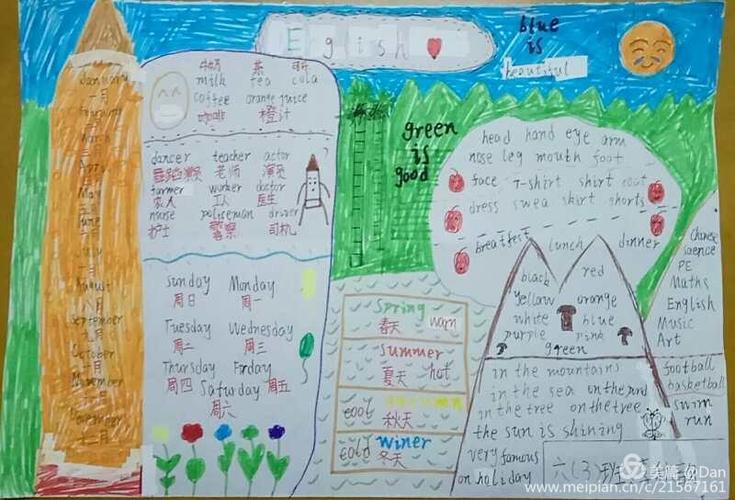 English
blue
is
beautiful
January
一月
March
May
June
July
August
八月
September
九月
October
十月
November
十二月
牛奶 茶
milk tea cola
coffee orange juice
咖啡 橙汁
dancer teacher actor
老师 演员
farmer worker doctor
农人 工人 医生
nurse policeman driver
护士 警察 司机
Sunday Monday
周日 周一
Tuesday Wednesday
周二 周三
Thursday Forday
周四 Saturday 周五
周六
green
is
good
head hand eye arm
nose leg mouth foot
face T-shirt shirt coat
dress swea skirt shorts
breatfest lunch dinner
black red
yellow orange
white blue
purple pink
green
Chinese
PE
Maths
English
Music
Art
Spring
春天 warm
Summer
夏天 hot
cool 秋天
cold Winer
冬天
in the mountains
in the sea
in the tree on the tree
the sun is shining
very famous
on holiday
football
basketball
swim
run
六(3)班
美篇 @Dan
www.meipian.cn/c/21567161